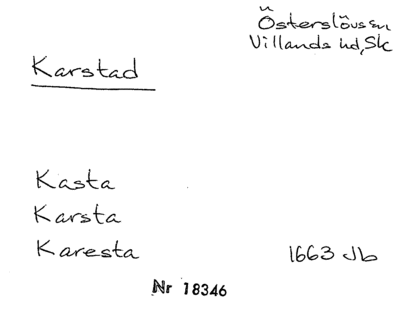 Österslövs sn
Villands hd, Sk
Karstad
Kasta
Karsta
Karesta 1663 Jb
Nr 18346